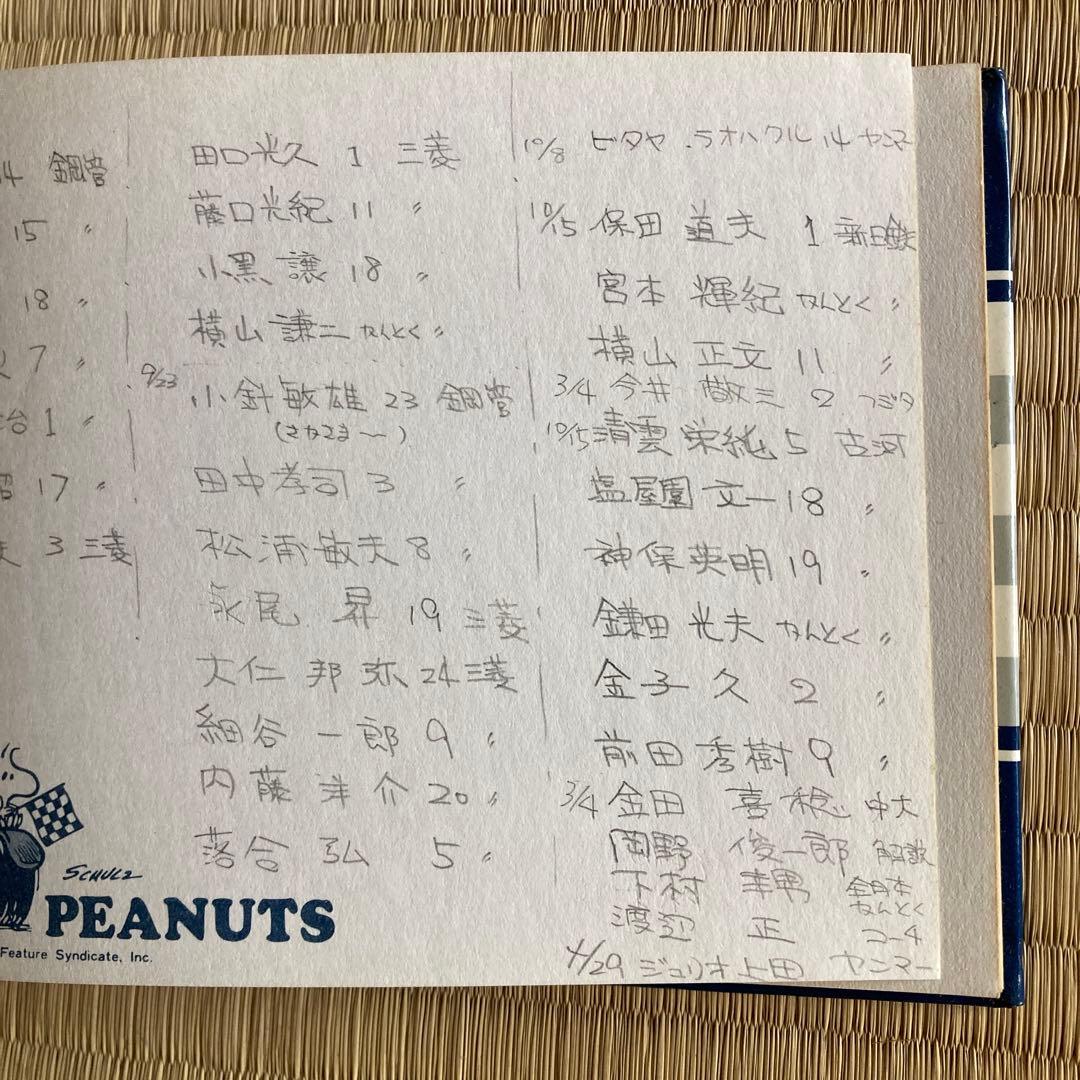 14 鋼管
15 〃
18 〃
7 〃
台 1 〃
17 〃
夫 3 三菱
田口光久 1 三菱
藤口光紀 11 〃
小黒 譲 18 〃
横山 謙三 かんとく 〃
9/23 小針敏雄 23 鋼管
田中孝司 3 〃
松浦敏夫 8 〃
永尾 昇 19 三菱
大仁 邦弥 24 三菱
細谷 一郎 9 〃
内藤 洋介 20 〃
落合 弘 5 〃
10/8 ビタヤ ラオハクル 14 ヤンマ
10/15 保田 道夫 1 新日鉄
宮本 輝紀 かんとく 〃
横山 正文 11 〃
3/4 今井 敬三 2 フジタ
10/15 清雲 栄純 5 古河
塩屋園 文一 18 〃
神保英明 19 〃
鎌田 光夫 かんとく 〃
金子 久 2 〃
前田 秀樹 9 〃
3/4 金田 喜稔 中大
岡野 俊一郎 解説
下村 幸男 全日本 かんとく
渡辺 正 コーチ
4/29 ジュリオ上田 ヤンマー
SCHULZ
PEANUTS
Feature Syndicate, Inc.